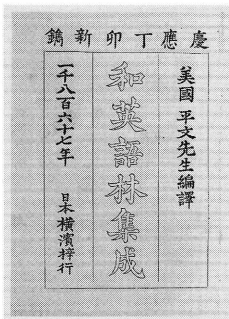 慶應丁卯新鐫
美國 平文先生編譯
和英語林集成
一千八百六十七年
日本橫濱梓行